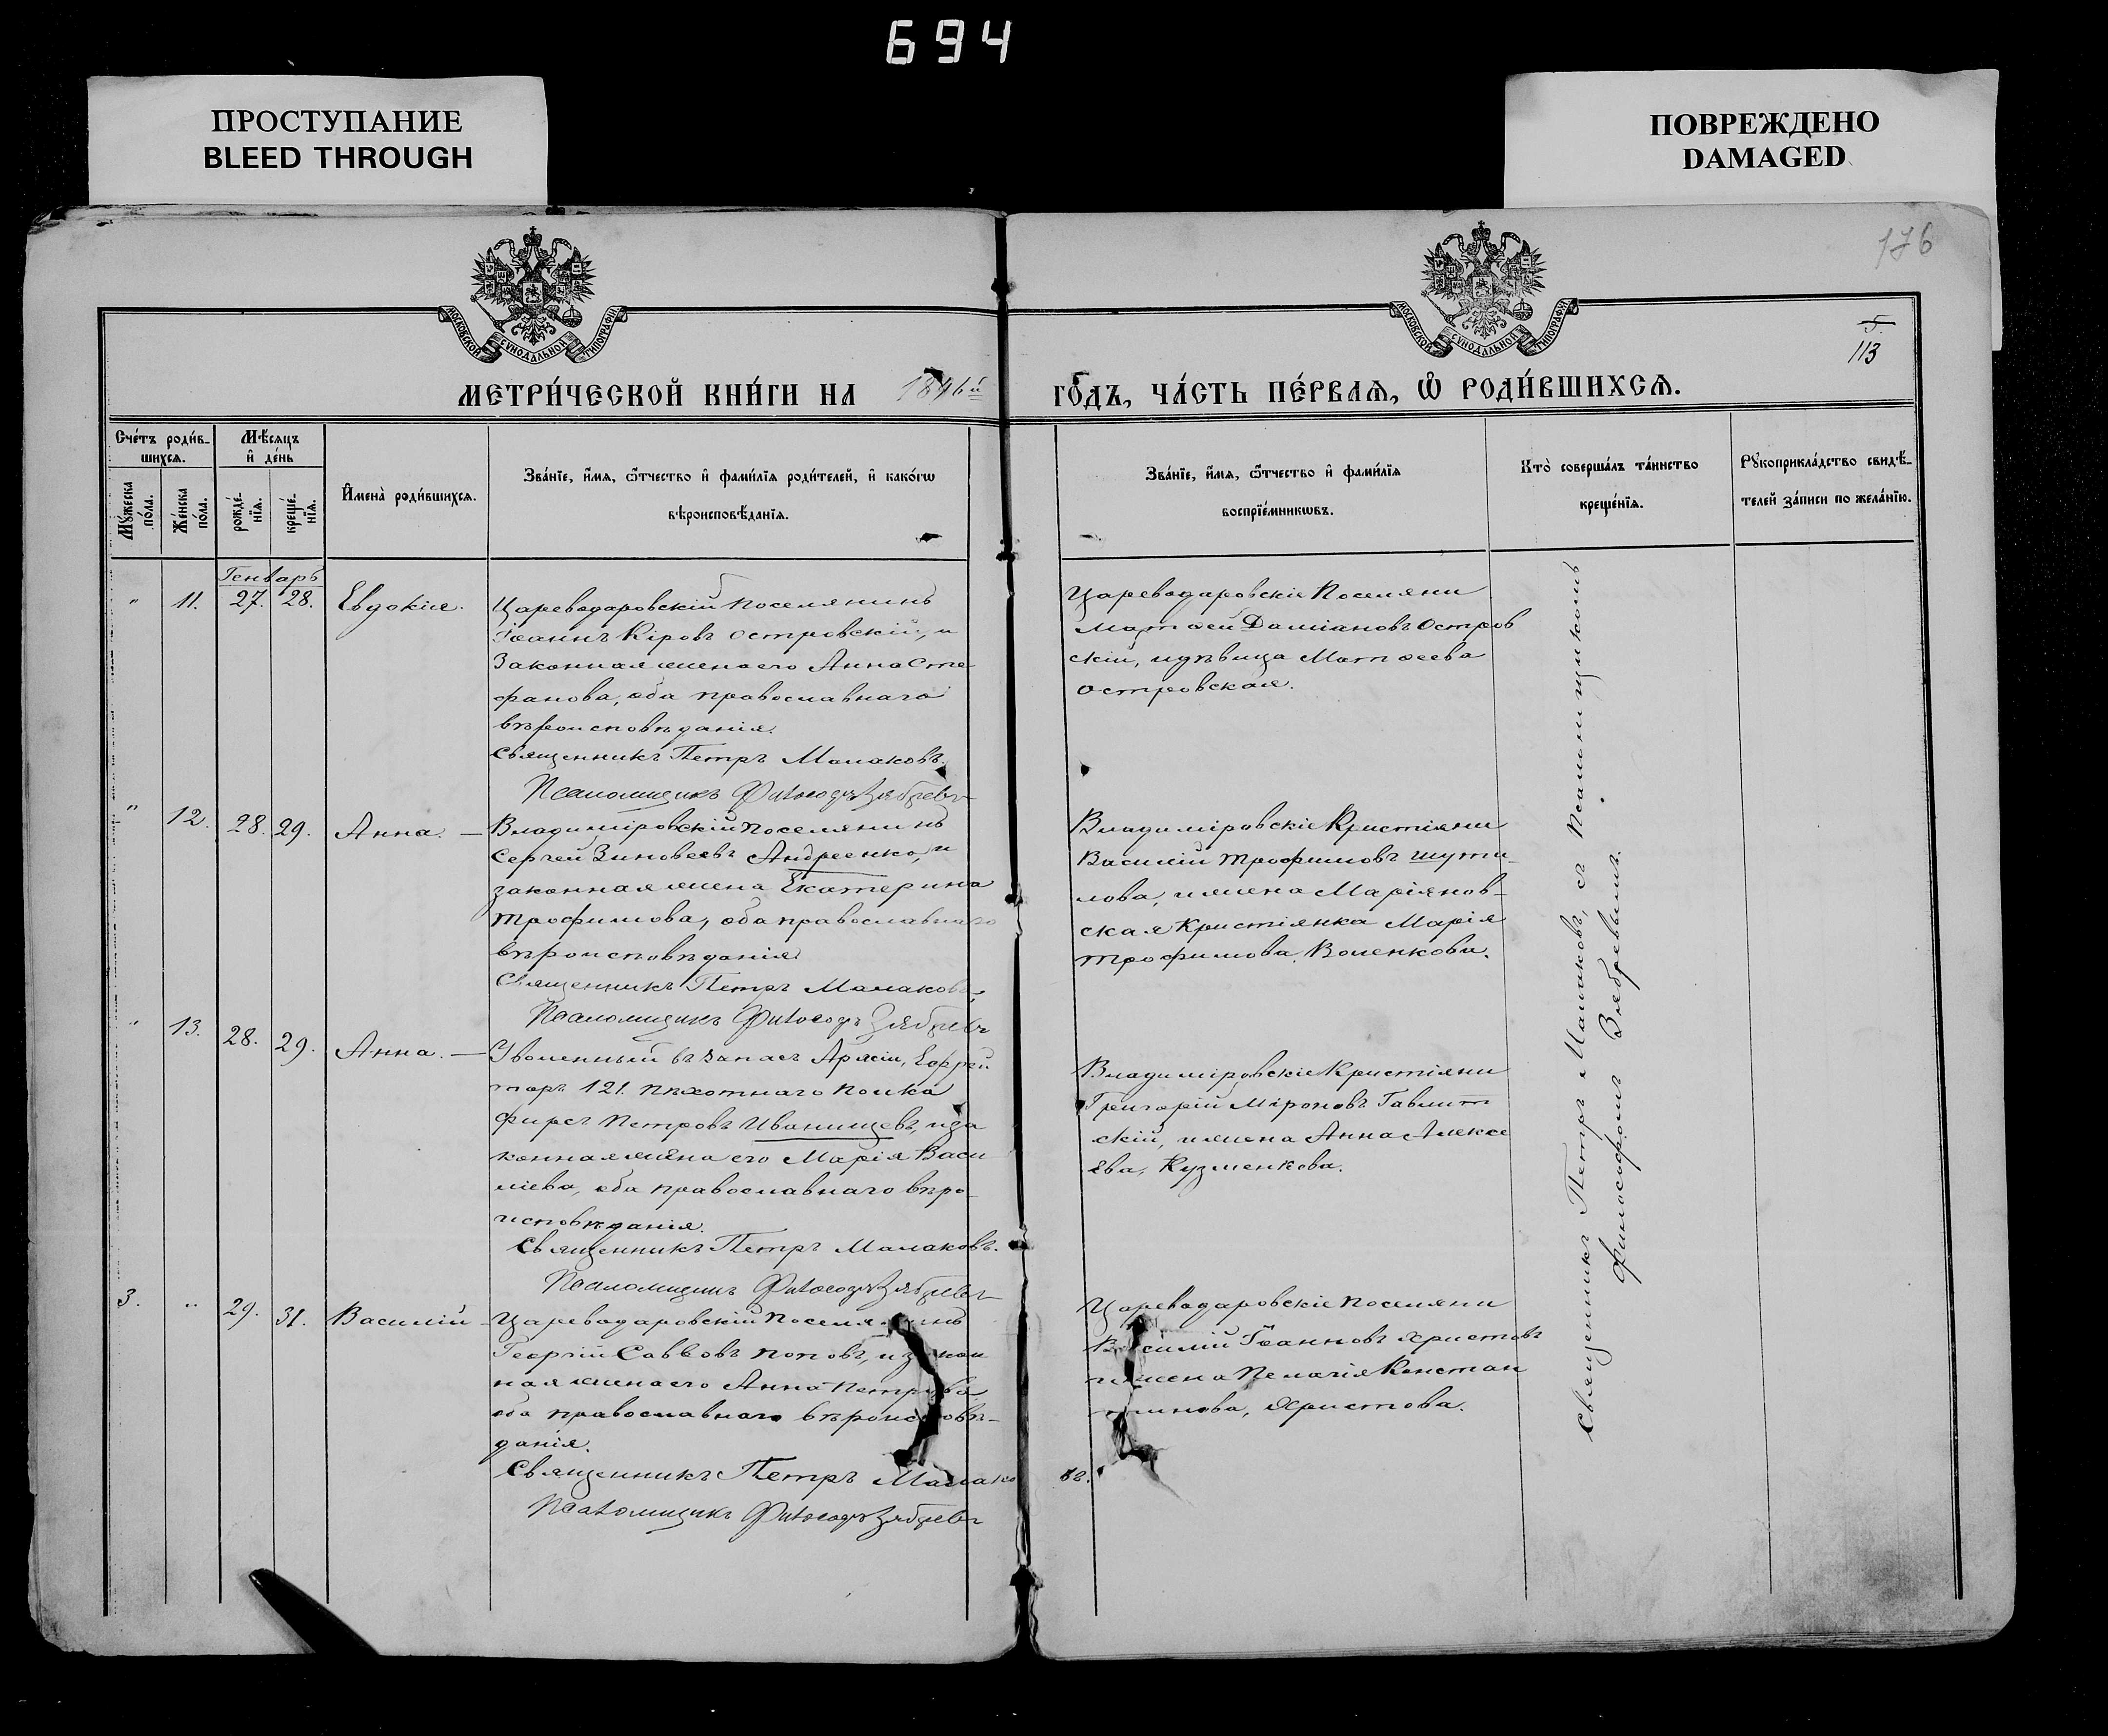 694
ПРОСТУПАНИЕ
BLEED THROUGH
ПОВРЕЖДЕНО
DAMAGED
176
МОСКОВСКОЙ СѴНОДАЛЬНОЙ ТИПОГРАФІИ
МОСКОВСКОЙ СѴНОДАЛЬНОЙ ТИПОГРАФІИ
5.
113
МЕТРИ́ЧЕСКОЙ КНИ́ГИ НА 1896й
ГО́ДЪ, ЧА́СТЬ ПЕ́РВАЯ, Ѡ҆ РОДИ́ВШИХСЯ.
Сче́тъ роди́в-
шихся.
Мѣ́сяцъ
и҆ де́нь
Мꙋ́жеска
по́ла.
Же́нска
по́ла.
рожде́-
нїя.
креще́-
нїя.
И҆мена̀ роди́вшихся.
Зва́нїе, и҆́мя, ѻ҆́тчество и҆ фами́лїя роди́телей, и҆ како́гѡ
вѣроисповѣ́данїя.
Зва́нїе, и҆́мя, ѻ҆́тчество и҆ фами́лїя
воспрїе́мникѡвъ.
Кто̀ соверша́лъ та́инство
креще́нїя.
Рꙋкоприкла́дство свидѣ́-
телей за́писи по жела́нїю.
Генварь
" 11. 27. 28. Евдокія.
Цареводаровскій поселянинъ
Іоаннъ Кіровъ Островскій, и
Законная жена его Анна Сте
фанова, оба православнаго
вѣроисповѣданія.
Священникъ Петръ Малаковъ.
Псаломщикъ Философъ Зябревъ
Цареводаровскіе Поселяни
Матѳей Даміановъ Остров
скій, и дѣвица Матѳеева
Островская.
" 12. 28. 29. Анна. —
Владиміровскій поселянинъ
Сергей Зиновеевъ Андреенко, и
законная жена Екатерина
Трофимова, оба православнаго
вѣроисповѣданія
Священникъ Петръ Малаковъ,
Псаломщикъ Философъ Зябревъ
Владиміровскіе Кристіяни
Василій Трофимовъ Шути-
лова, и жена Маріянов-
ская Кристіянка Марія
Трофимова, Воленкова.
" 13. 28. 29. Анна. —
Уволенный въ запасъ Арміи, Ефрей
торъ 121. пѣхотнаго полка
Фирсъ Петровъ Иванищевъ, и за
конная жена его Марія Васи
ліева, оба православнаго вѣро-
исповѣданія.
Священникъ Петръ Малаковъ.
Псаломщикъ Философъ Зябревъ
Владиміровскіе Кристіяни
Григорій Міроновъ Гавлит
скій, и жена Анна Алексе
ева, Кузменкова.
3. " 29. 31. Василій -
Цареводаровскій поселянинъ
Георгій Саввовъ Поповъ, и закон
ная жена его Анна Петрова
оба православнаго вѣроисповѣ-
данія.
Священникъ Петръ Малако въ.
Псаломщикъ Философъ Зябревъ
Цареводаровскіе поселяни
Василій Іоанновъ Христовъ
и жена Пелагія Констан
тинова, Христова.
Священникъ Петръ Малаковъ, съ Псаломщикомъ
Философомъ Зябревымъ.